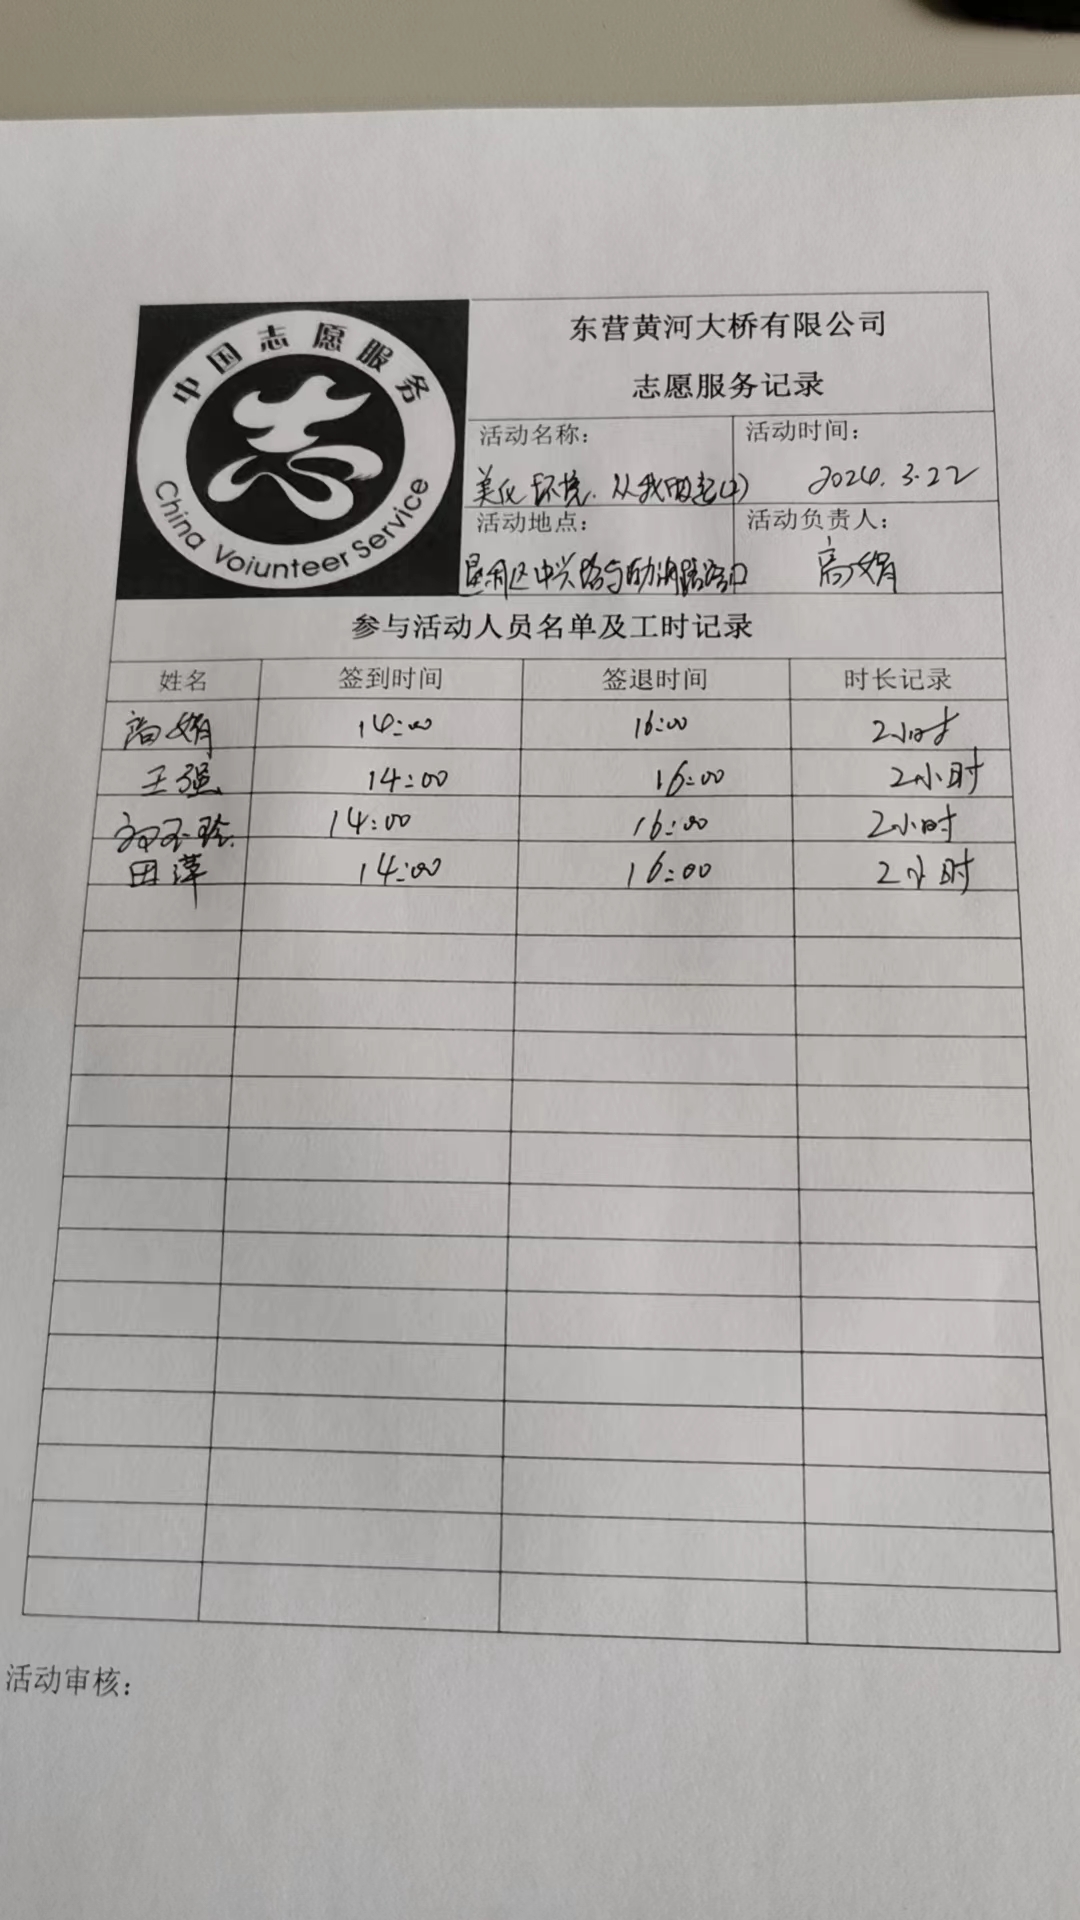 中国志愿服务
志
China Voiunteer Service
东营黄河大桥有限公司
志愿服务记录
活动名称：
活动时间：
美化环境，从我做起(2)
2024.3.22
活动地点：
活动负责人：
垦利区中兴路与 路路口
高娟
参与活动人员名单及工时记录
姓名 签到时间 签退时间 时长记录
高娟 14:00 16:00 2小时
王强 14:00 16:00 2小时
14:00 16:00 2小时
田萍 14:00 16:00 2小时
活动审核：